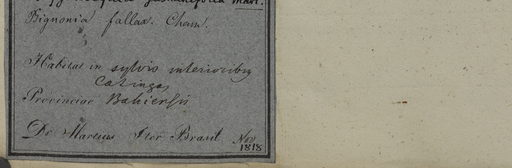 Bignonia fallax. Cham.
Habitat in sylvis interioribus
Catingas
Provinciae Bahiensis
Dr Martius Iter Brasil Nov
1818